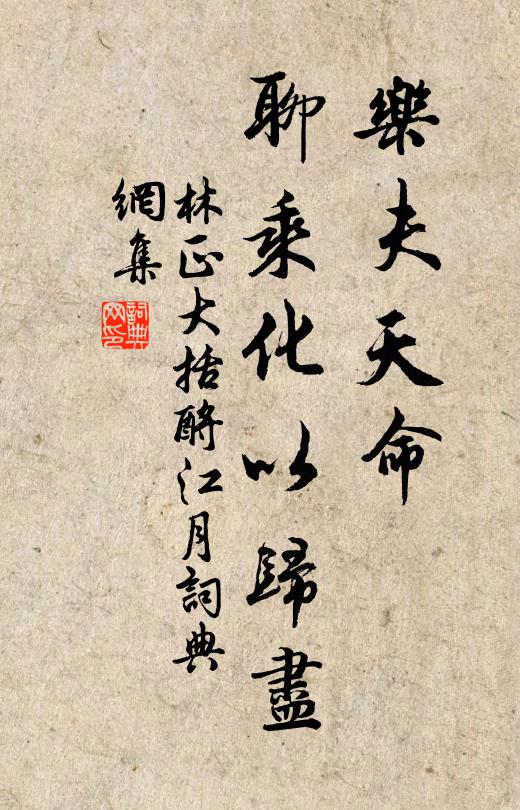 樂夫天命
聊乘化以歸盡
林正大括酹江月詞典
網集
詞典
网印